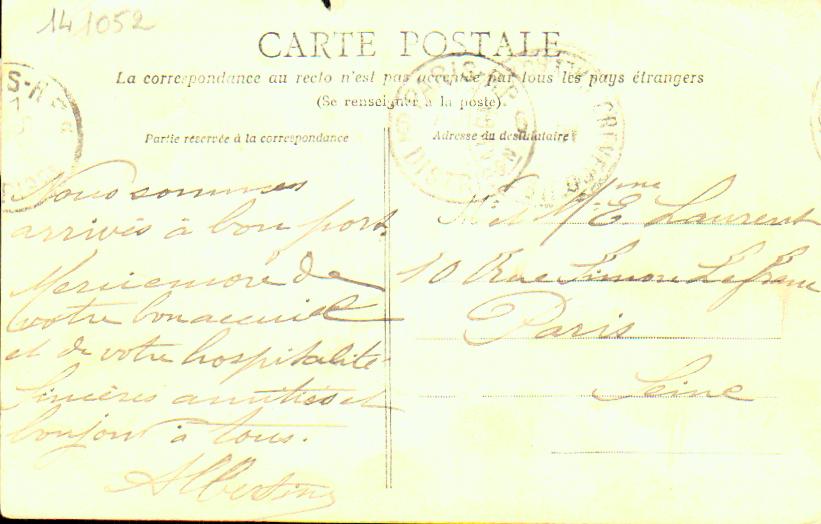 141052
CARTE POSTALE
La correspondance au recto n'est pas acceptée par tous les pays étrangers
(Se renseigner à la poste).
Partie réservée à la correspondance
Nous sommes
arrivés à bon port.
Merci encore de
votre bon accueil
et de votre hospitalité
Sincères amitiés et
bonjour à tous.
Albertine
Adresse du destinataire
Mr et Mme E. Laurent
10 Rue Simon Lefranc
Paris
Seine
PARIS
DISTRIBUTION